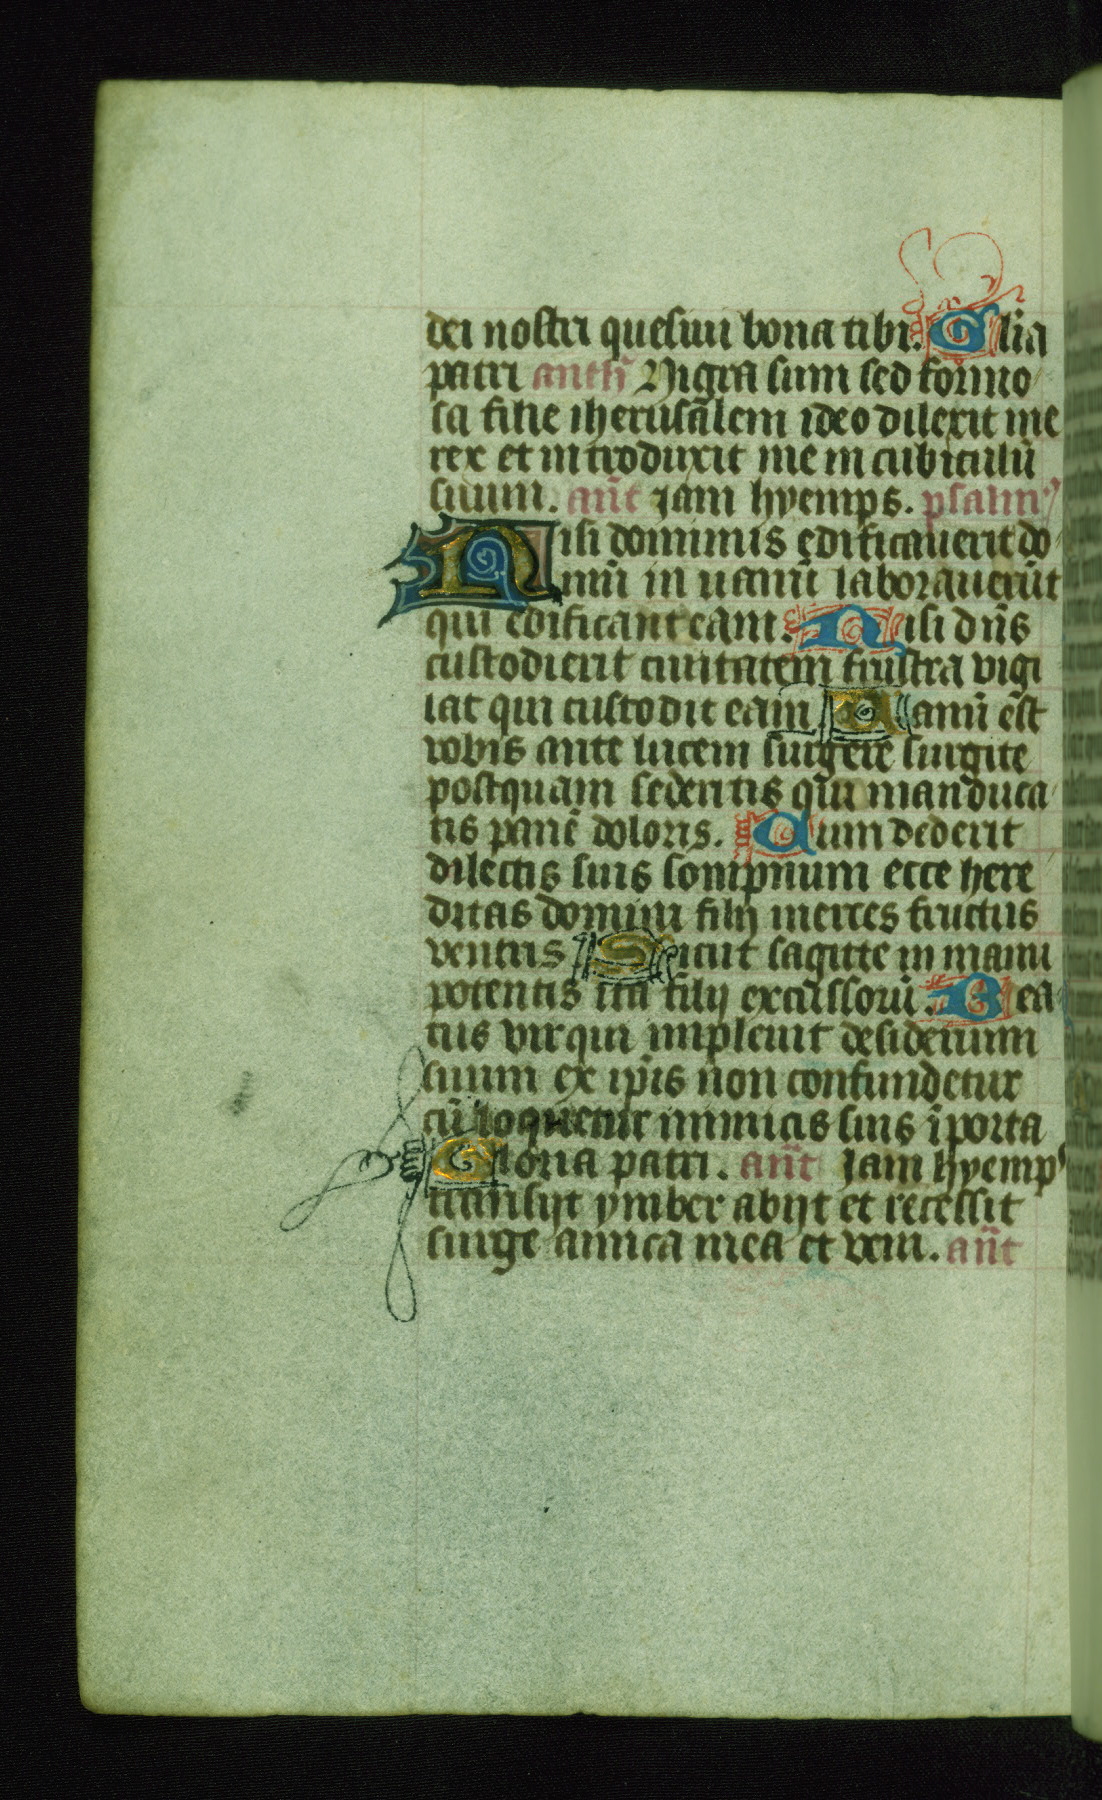 dei nostri quesiui bona tibi. Gl̃ia
patri anth̃ Nigra sum sed formo
sa filie iherusãlem ideo dilexit me
rex et introduxit me in cubiculũ
suum. añt Jam hyemps. psalm⁹
Nisi dominus edificauerit do
mũ in uanũ laborauerũt
qui edificant eam. Nisi dñs
custodierit ciuitatem frustra vigi
lat qui custodit eam Uanũ est
vobis ante lucem surgere surgite
postquam sederitis qui manduca
tis panẽ doloris. Cum dederit
dilectis suis sompnum ecce here
ditas domini filij merces fructus
ventris Sicut sagitte in manu
potentis ita filij excussorũ. Bea
tus vir qui impleuit desiderium
suum ex ip̃is non confundetur
cũ loquetur inimicis suis ĩ porta
Gloria patri. añt Jam hyemps
transijt ymber abijt et recessit
surge amica mea et veni. añt